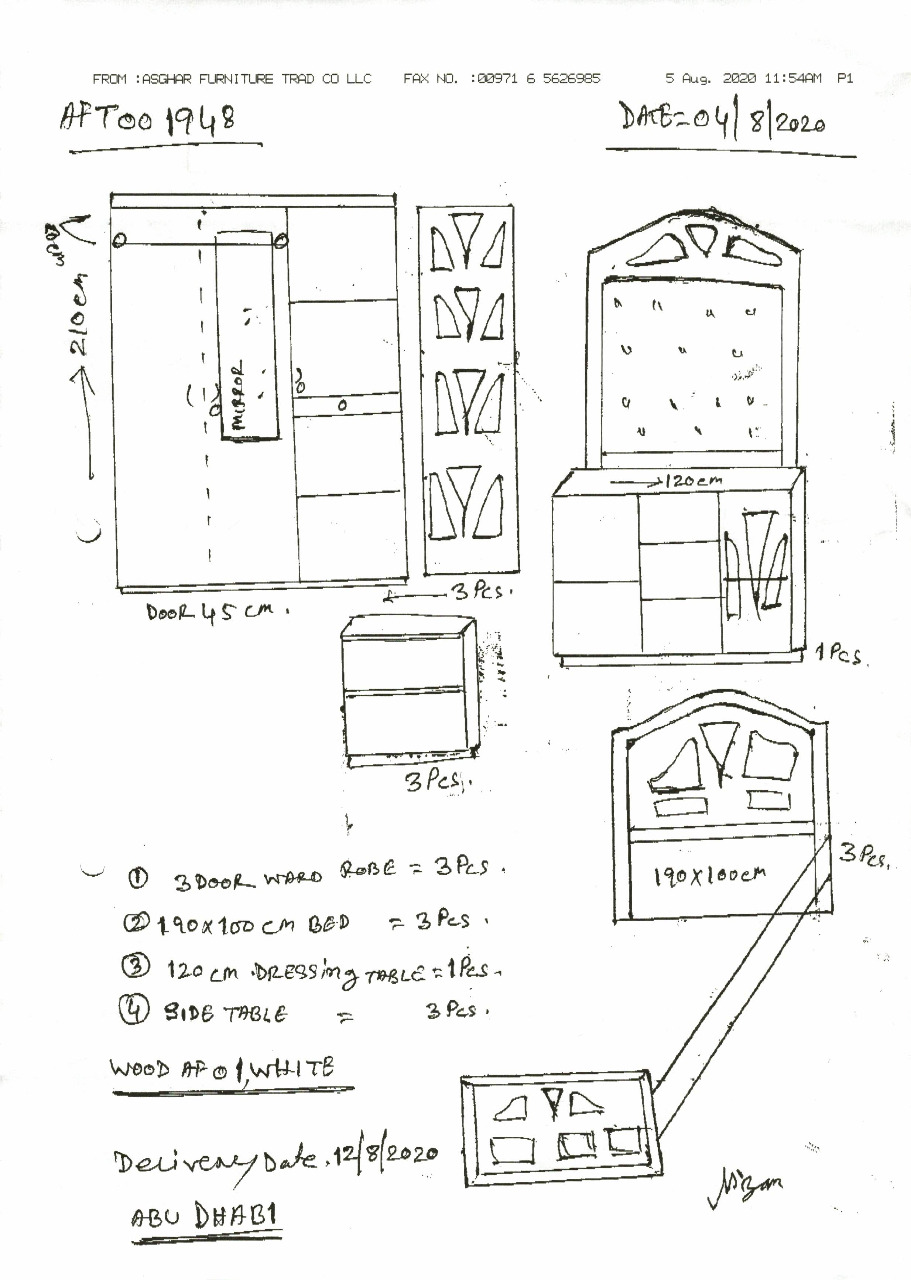 FROM :ASGHAR FURNITURE TRAD CO LLC FAX NO. :00971 6 5626985 5 Aug. 2020 11:54AM P1
AFT001948
DATE=04/8/2020
210cm
MIRROR
120cm
3Pcs.
DOOR 45 cm.
1Pcs.
3Pcs.
3Pcs.
190x100cm
① 3DOOR WARD ROBE = 3Pcs.
② 190x100 CM BED = 3Pcs.
③ 120cm .DRESSing TABLE=1Pcs.
④ SIDE TABLE = 3Pcs.
WOOD AF01,WHITE
Delivery Date.12/8/2020
ABU DHABI
Nizam